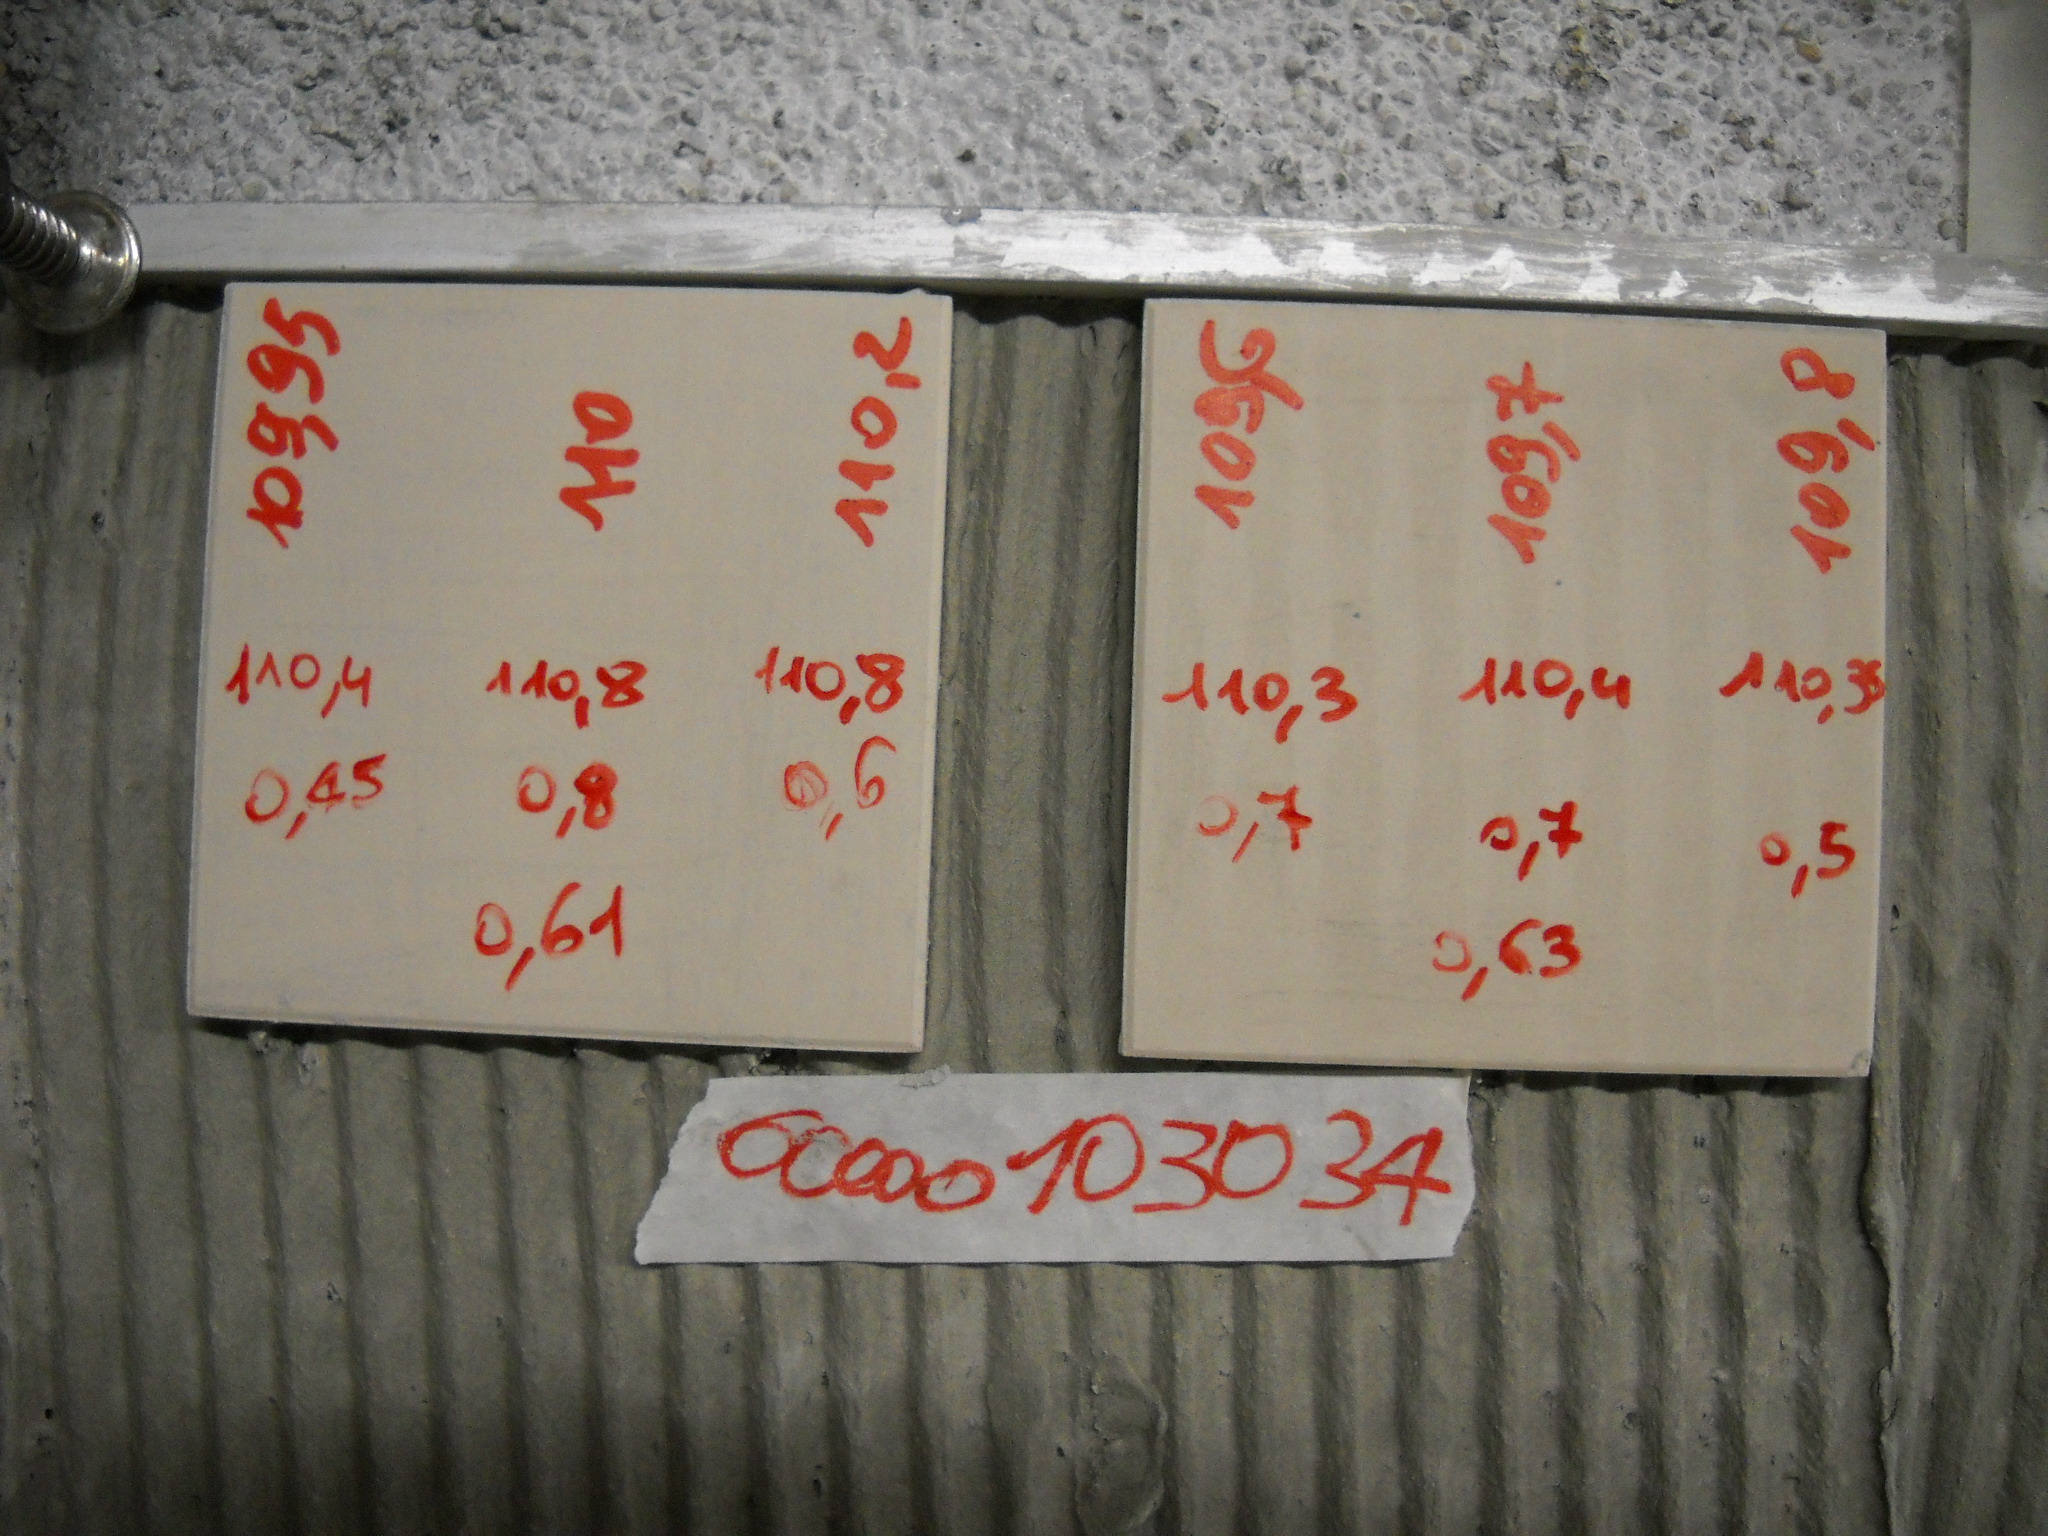 109,95 110 110,2
110,4 110,8 110,8
0,45 0,8 0,6
0,61
109,6 109,7 109,8
110,3 110,4 110,35
0,7 0,7 0,5
0,63
00000103034